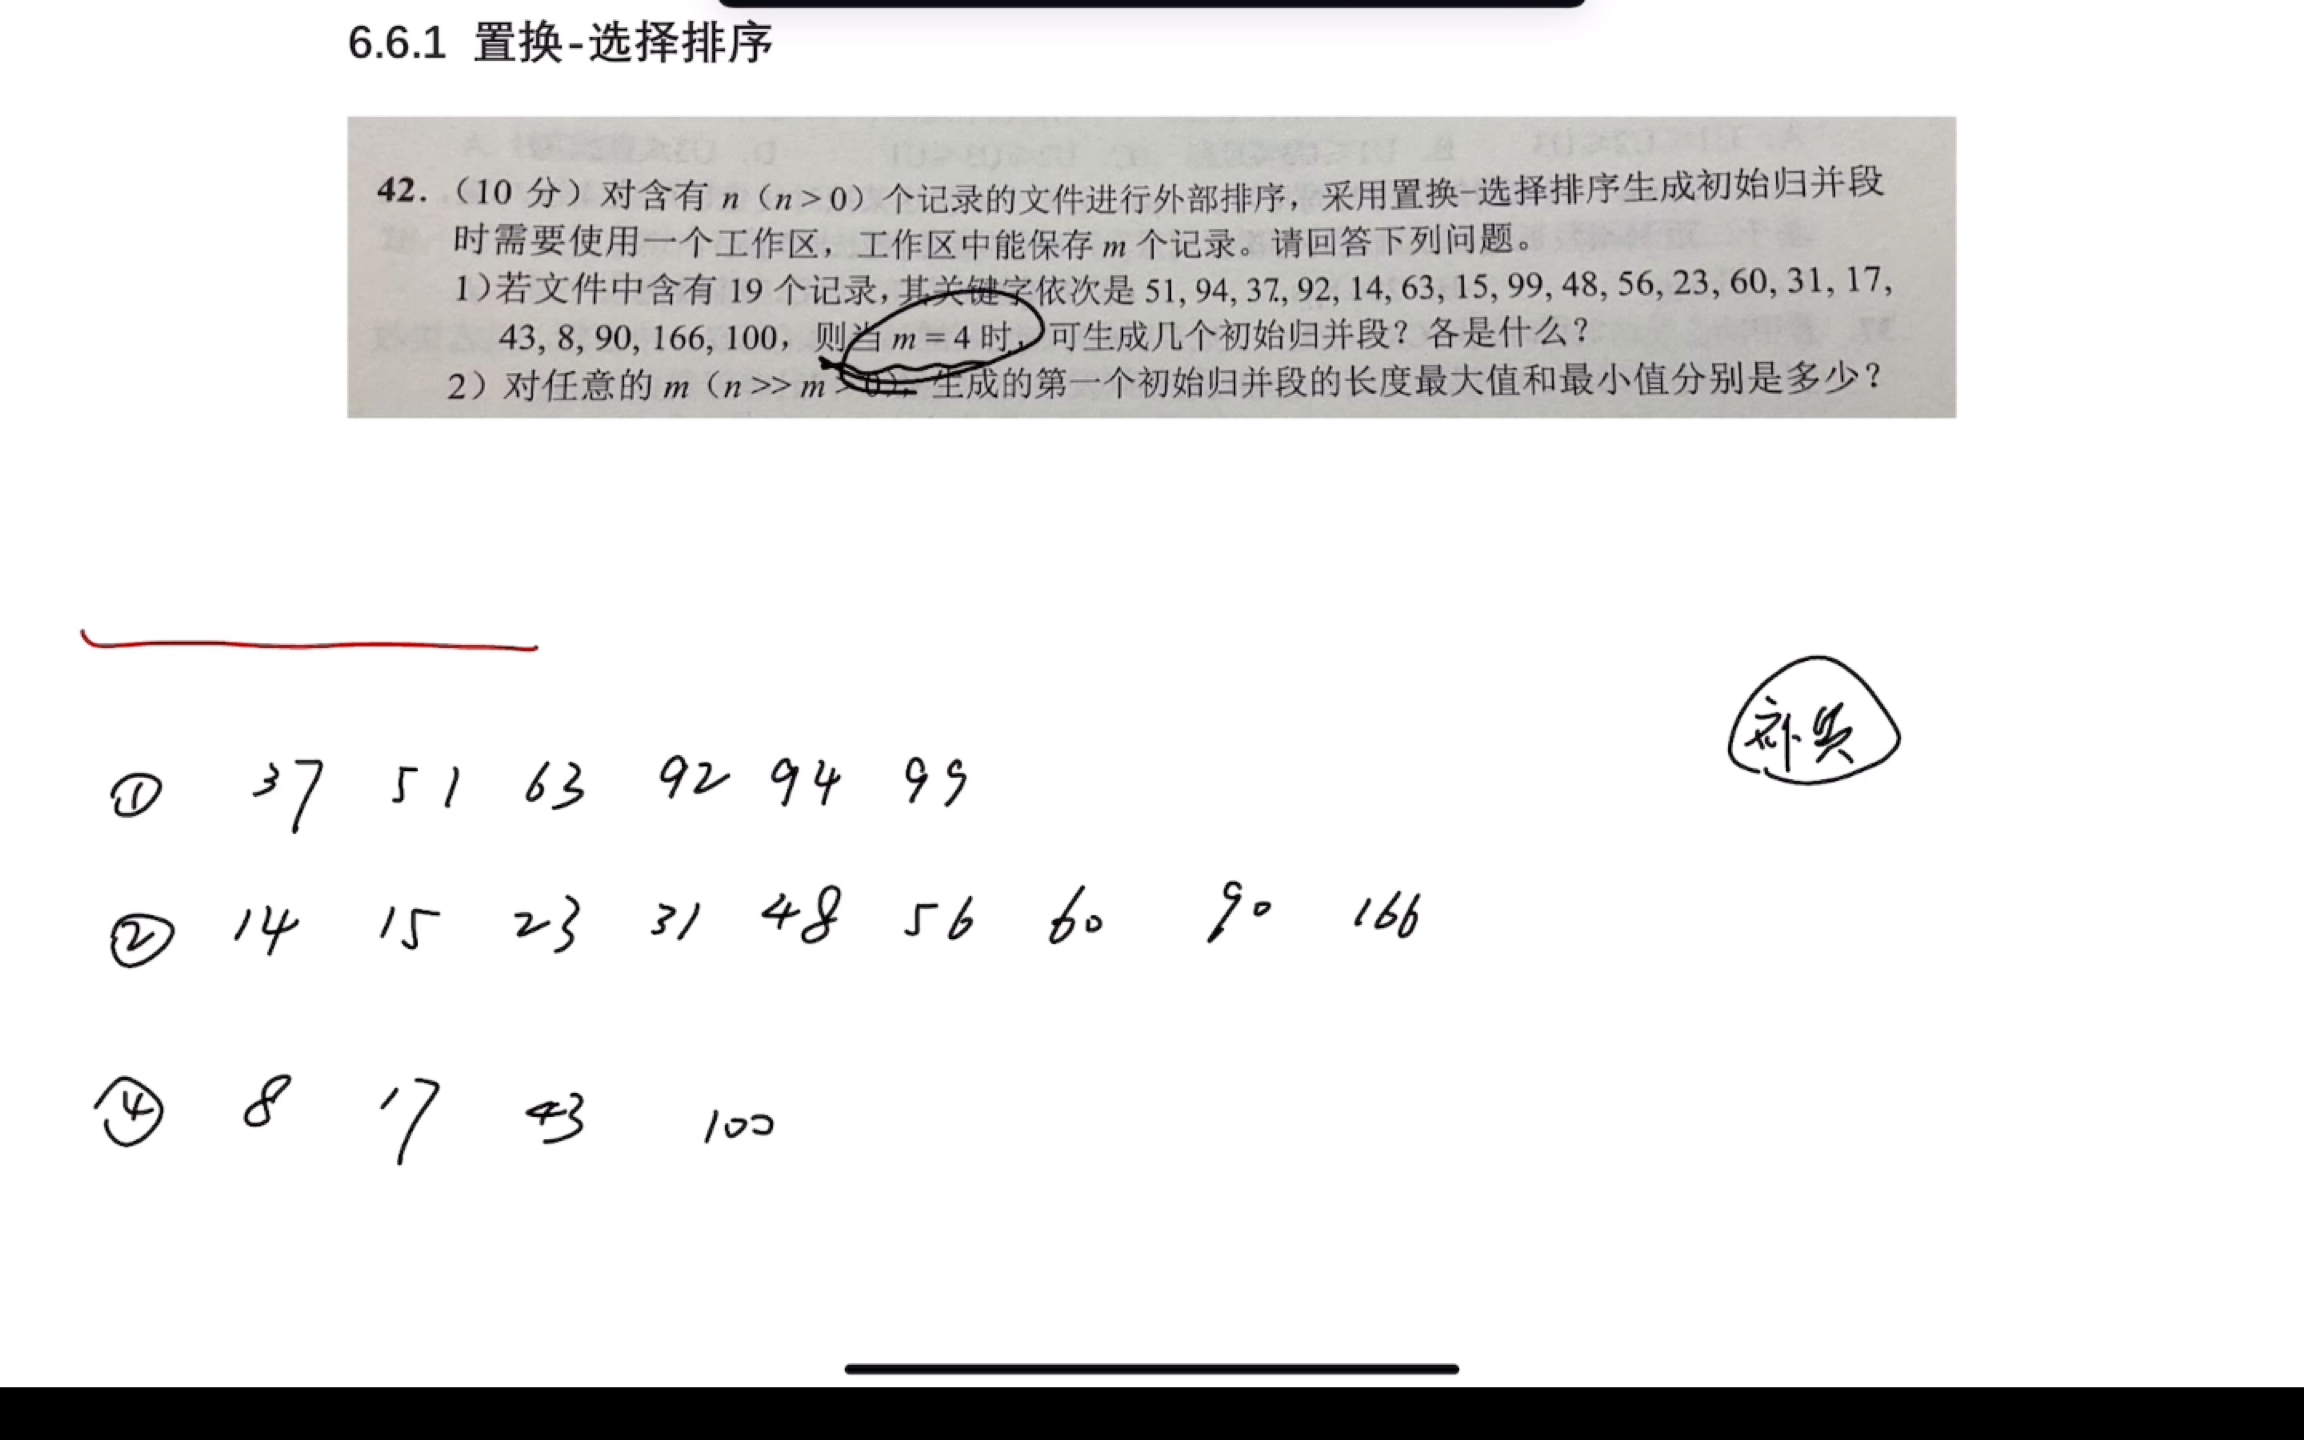 6.6.1 置换-选择排序
42.（10 分）对含有 n（n > 0）个记录的文件进行外部排序，采用置换-选择排序生成初始归并段
时需要使用一个工作区，工作区中能保存 m 个记录。请回答下列问题。
1）若文件中含有 19 个记录，其关键字依次是 51, 94, 37, 92, 14, 63, 15, 99, 48, 56, 23, 60, 31, 17,
43, 8, 90, 166, 100，则当 m = 4 时，可生成几个初始归并段？各是什么？
2）对任意的 m（n >> m > 0），生成的第一个初始归并段的长度最大值和最小值分别是多少？
① 37 51 63 92 94 99
② 14 15 23 31 48 56 60 90 166
④ 8 17 43 100